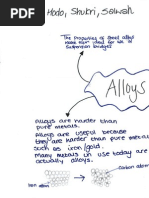 Hodo, Shukri, Salwah
The Properties of steel alloy
make them ideal for use in
Suspension bridges
Alloys
Alloys are harder than
pure metals.
Alloys are useful because
they are harder than pure metals
such as iron/gold.
Many metals in use today are
actually alloys.
Iron atom
carbon atom